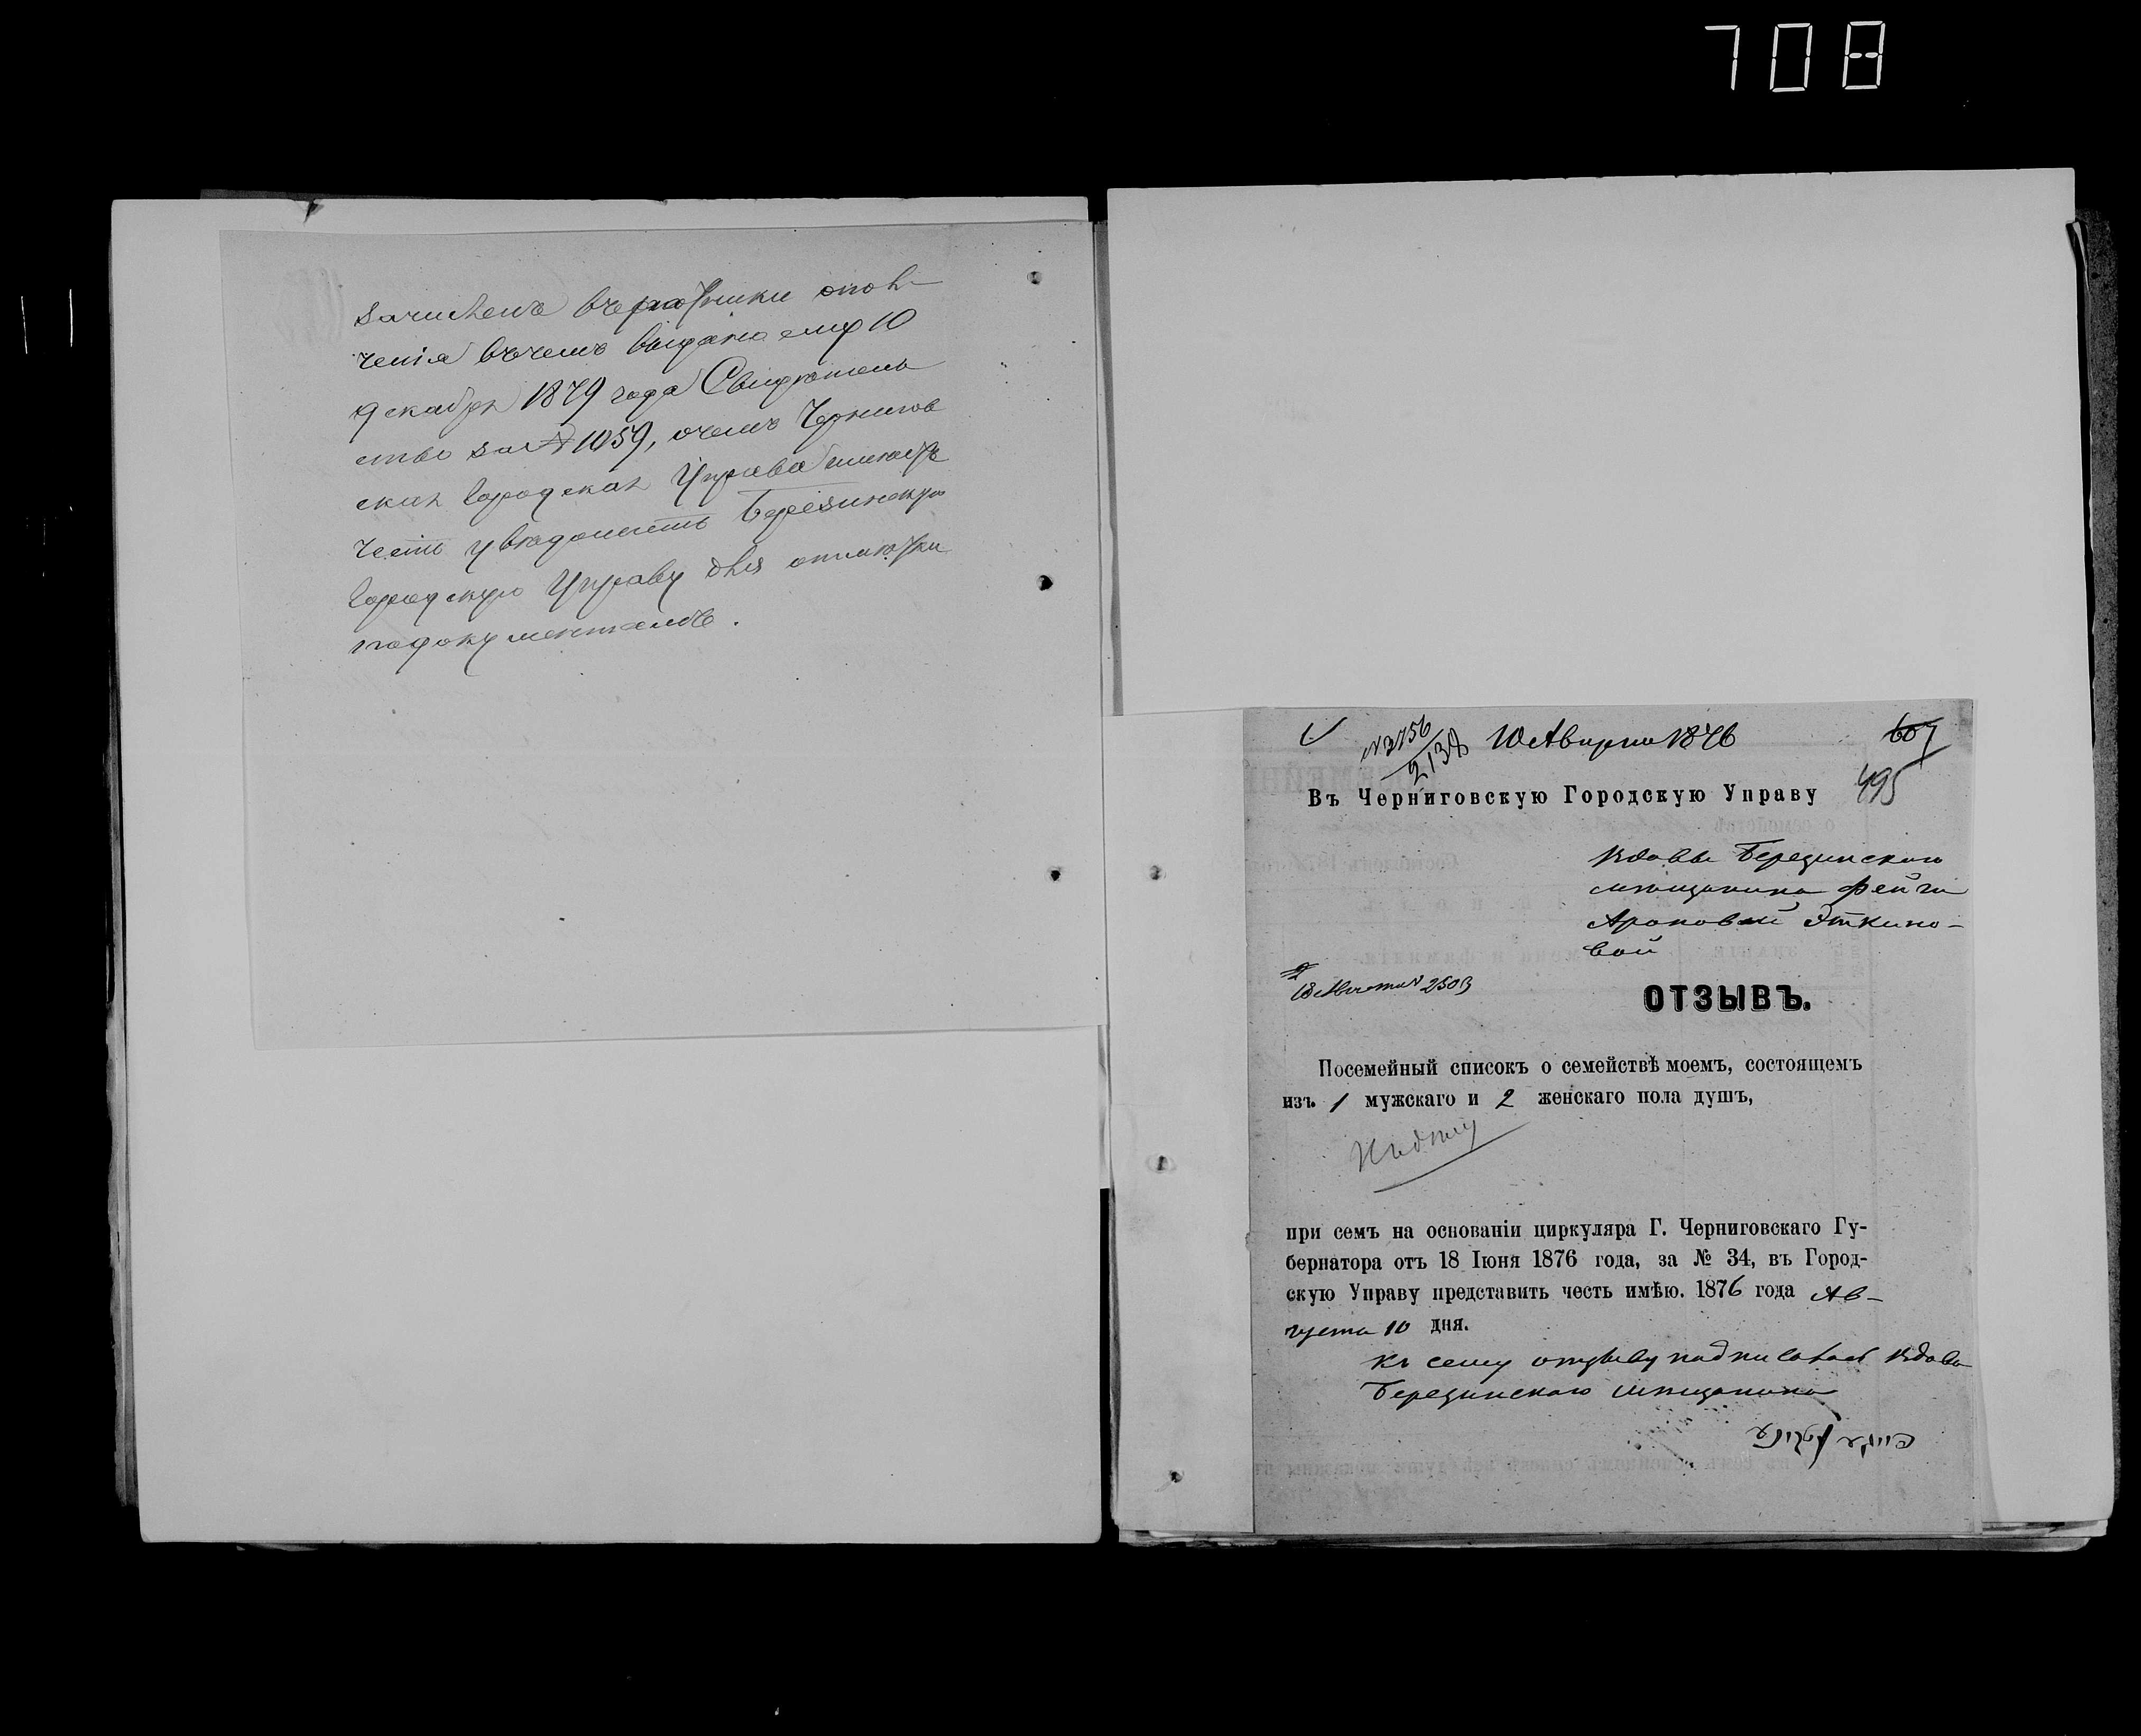 708
зачисленъ въ ратники опол-
ченія въ чемъ выдано ему 10
декабря 1879 года Свидѣтель
ство за № 1059, о чемъ Чернигов
ская Городская Управа имѣетъ
честь увѣдомить Березинскую
Городскую Управу для отмѣтки
по документамъ.
№ 2756
2138
10 Августа 1876
607
495
Въ Черниговскую Городскую Управу
Вдовы Березинскаго
мѣщанина Фейги
Ароновой Эткино-
вой
18 Августа № 2503
ОТЗЫВЪ.
Посемейный списокъ о семействѣ моемъ, состоящемъ
изъ 1 мужскаго и 2 женскаго пола душъ,
при семъ на основаніи циркуляра Г. Черниговскаго Гу-
бернатора отъ 18 Іюня 1876 года, за № 34, въ Город-
скую Управу представить честь имѣю. 1876 года Ав-
густа 10 дня.
Къ сему отзыву подписалась Вдова
Березинскаго мѣщанина